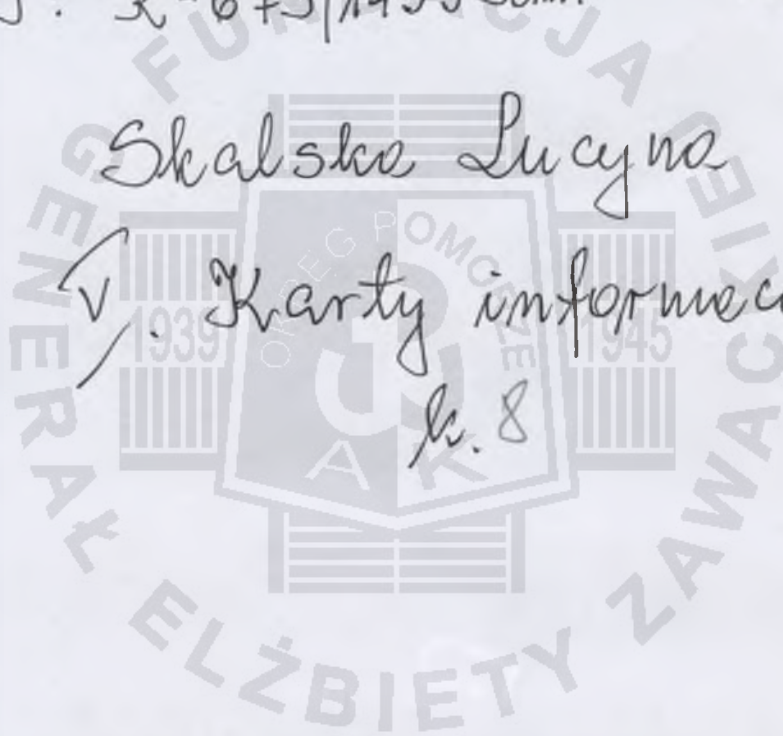 Skalska Lucyna
V. Karty informac
k. 8
FUNDACJA GENERAŁ ELŻBIETY ZAWACKIEJ
OKRĘG POMORZE
1939 1945
AK